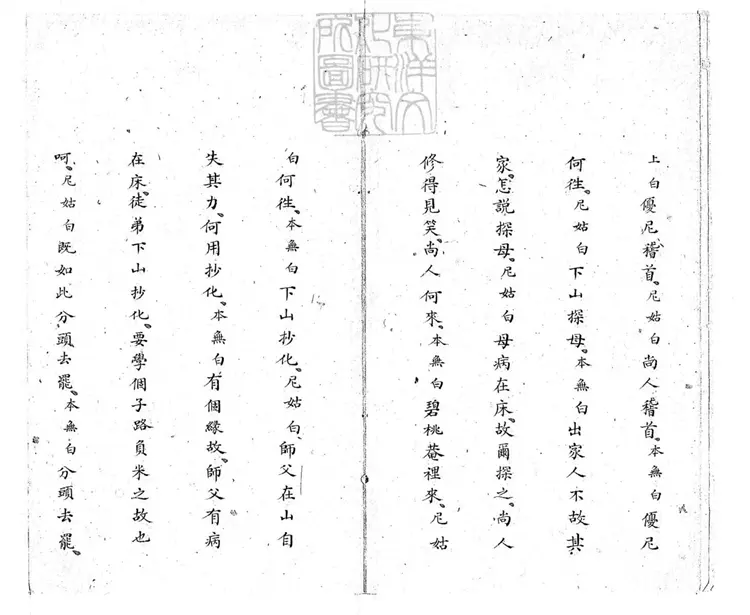 東洋文
化研究
所圖書
上白優尼稽首。尼姑白尚人稽首。本無白優尼
何徃。尼姑白下山探母。本無白出家人不故其
家。怎說探母。尼姑白母病在床。故爾探之。尚人
修得見笑。尚人何來。本無白碧桃菴裡來。尼姑
白何徃。本無白下山抄化。尼姑白師父在山自
失其力。何用抄化。本無白有個緣故。師父有病
在床。徒弟下山抄化。要學個子路負米之故也
呵。尼姑白既如此分頭去罷。本無白分頭去罷。